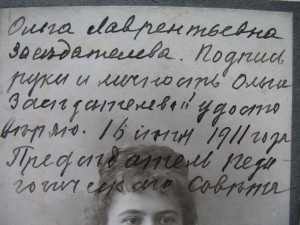 Ольга Лаврентьевна
Засѣдателева. Подпись
руки и личность Ольги
Засѣдателевой удосто
вѣряю. 16 июня 1911 года
Предсѣдатель Педа
гогическаго Совѣта